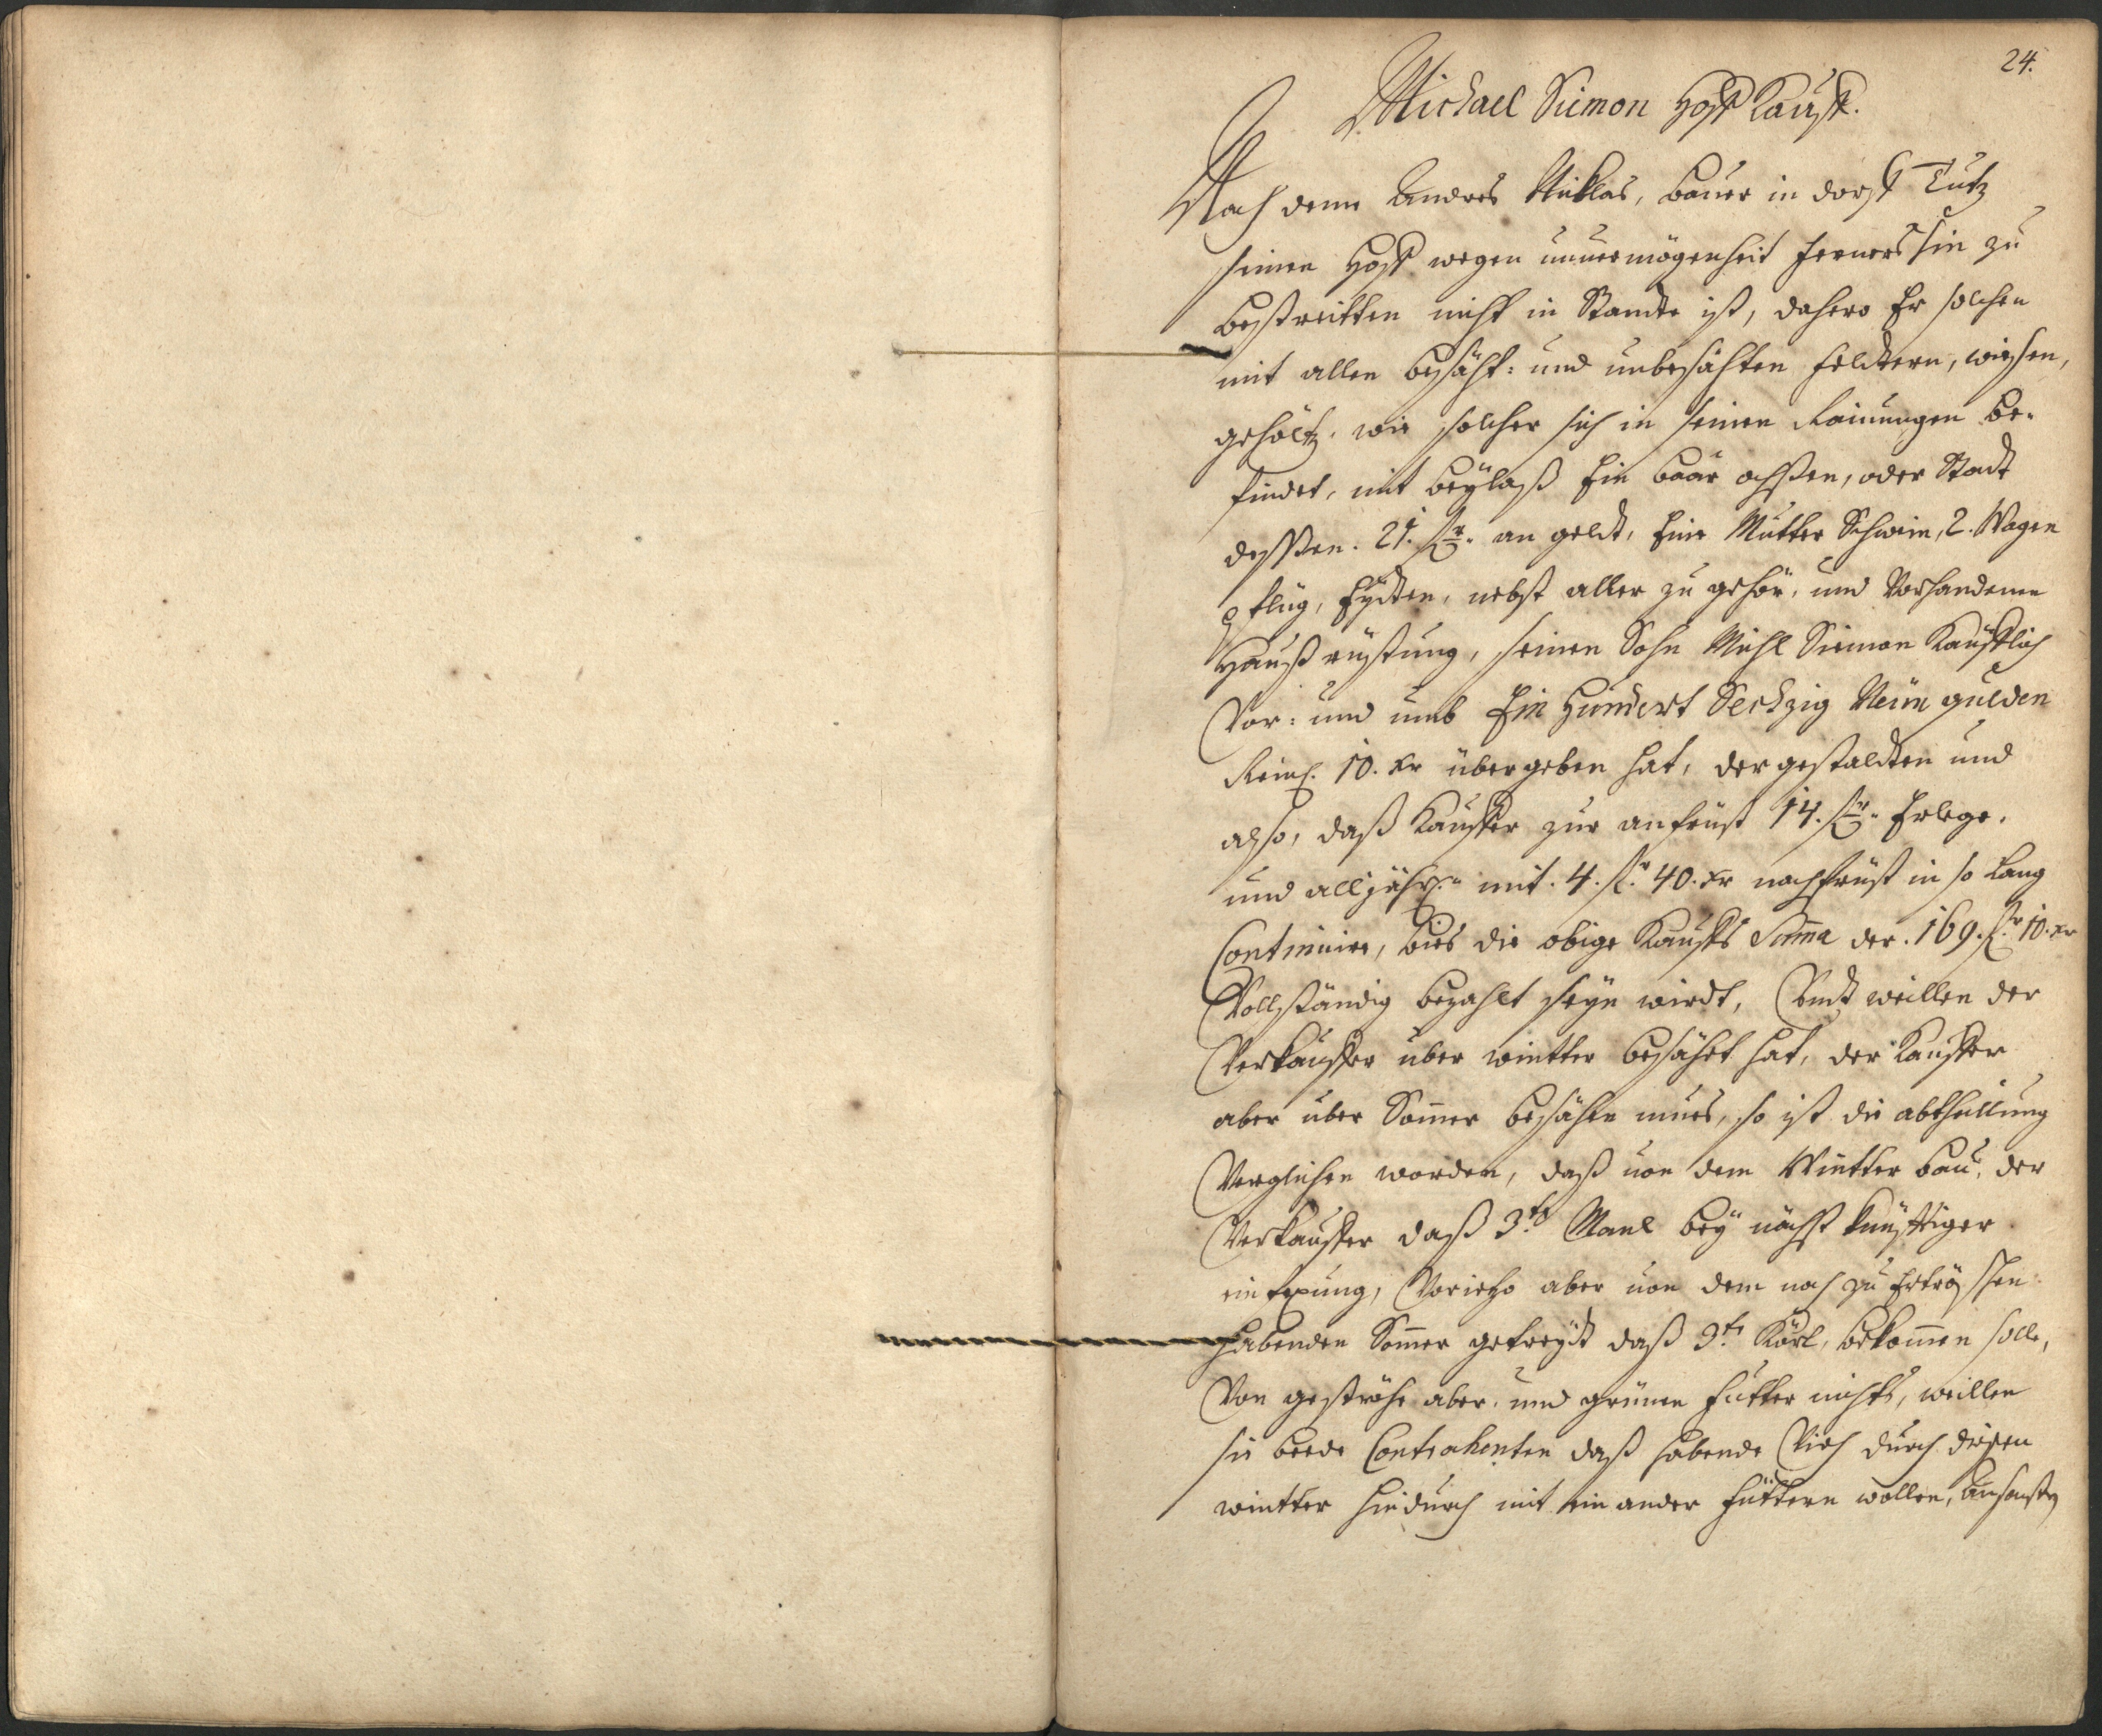 24.
Michael Siemon Hoff Kauff.
Nach deme Andres Nicklas, Bauer in dorff Tutz
seinen Hoff wegen unuermögenheit ferners hin zu
bestreitten nicht in Standte ist, dahero Er solchen
mit allen besäht: und unbesähten feldtern, wießen,
gehöltz, wie solcher sich in seinen Rainungen be-
findet, mit beÿlaß Ein baar ochßen, oder Stadt
dessßen. 21. fl. an geldt, Eine Mutter Schwein, 2. Wagen
pflug, Eÿdten, nebst aller zu gehör, und Vorhandene
Hauß rüstung, seinen Sohn Michl Siemon Kaufflich
Vor: und umb Ein Hundert Sechzig Neün gulden
Reinl. 10. xr übergeben hat, der gestaldten und
also, daß Kauffer zur anfrist 14. fl. Erlege,
und alljährl. mit. 4. fl. 40. xr nachfrist in so lang
Continuire, bies die obige Kauffs Suma der. 169. fl. 10. xr
Vollständig bezahlt seÿn wirdt, Undt weillen der
Verkauffer über wintter besähet hat, der Kauffer
aber über Somer besähen mues, so ist die abtheillung
Verglichen worden, daß uon dem Wintter bau, der
Verkauffer daß 3.te Manl beÿ nächst künfftiger
ein fexung, Vorietzo aber uon dem noch zu
habenden Somer getreÿdt daß 3.te Körl, bekomen solle,
Von geströhe aber, und grünen futter nichts, weillen
sie beede Contrahenten daß habende Vich durch dießen
wintter hindurch mit ein ander füttern wollen,